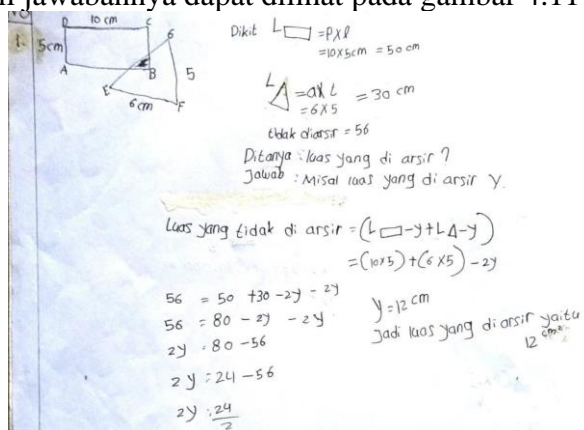 jawabannya dapat dilihat pada gambar 4.11
1.
D 10 cm C
5cm
A B
G
5
E
6 cm F
Dikit L▭ = P x l
= 10 x 5cm = 50 cm
L△ = a x t = 30 cm
= 6 x 5
tidak diarsir = 56
Ditanya : luas yang di arsir ?
Jawab : Misal luas yang di arsir y.
Luas yang tidak di arsir = (L▭ - y + L△ - y)
= (10x5) + (6 x 5) - 2y
56 = 50 + 30 - 2y - 2y
56 = 80 - 2y - 2y
2y = 80 - 56
2y = 24 - 56
2y = 24/2
y = 12 cm
Jadi luas yang di arsir yaitu
12 cm²